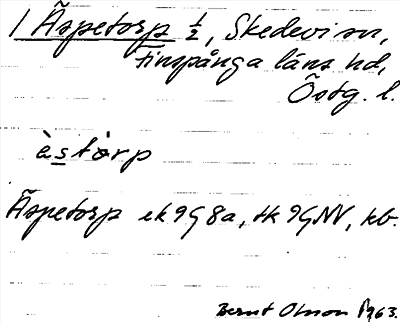 1 Äspetorp ½, Skedevi sn,
Finspånga läns hd,
Östg. l.
àstòrp
Äspetorp ek 9G 8a, tk 9G NV, kb.
Bernt Olsson 1963.